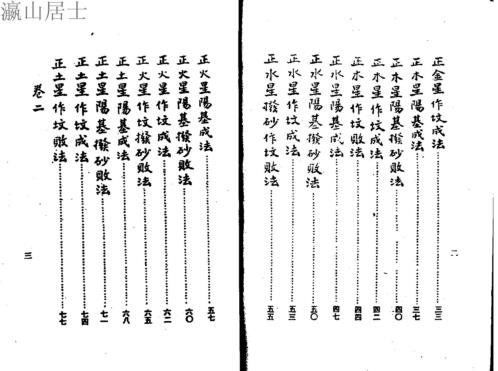 瀛山居士
正金星作坟成法 三三
正木星陽基成法 三七
正木星陽基撥砂敗法 四〇
正木星作坟成法 四二
正木星作坟敗法 四四
正水星陽基成法 四七
正水星陽基撥砂敗法 五〇
正水星作坟成法 五三
正水星撥砂作坟敗法 五五
二
正火星陽基成法 五七
正火星陽基撥砂敗法 六〇
正火星作坟成法 六二
正火星作坟撥砂敗法 六五
正土星陽基成法 六八
正土星陽基撥砂敗法 七一
正土星作坟成法 七四
正土星作坟敗法 七七
卷二
三